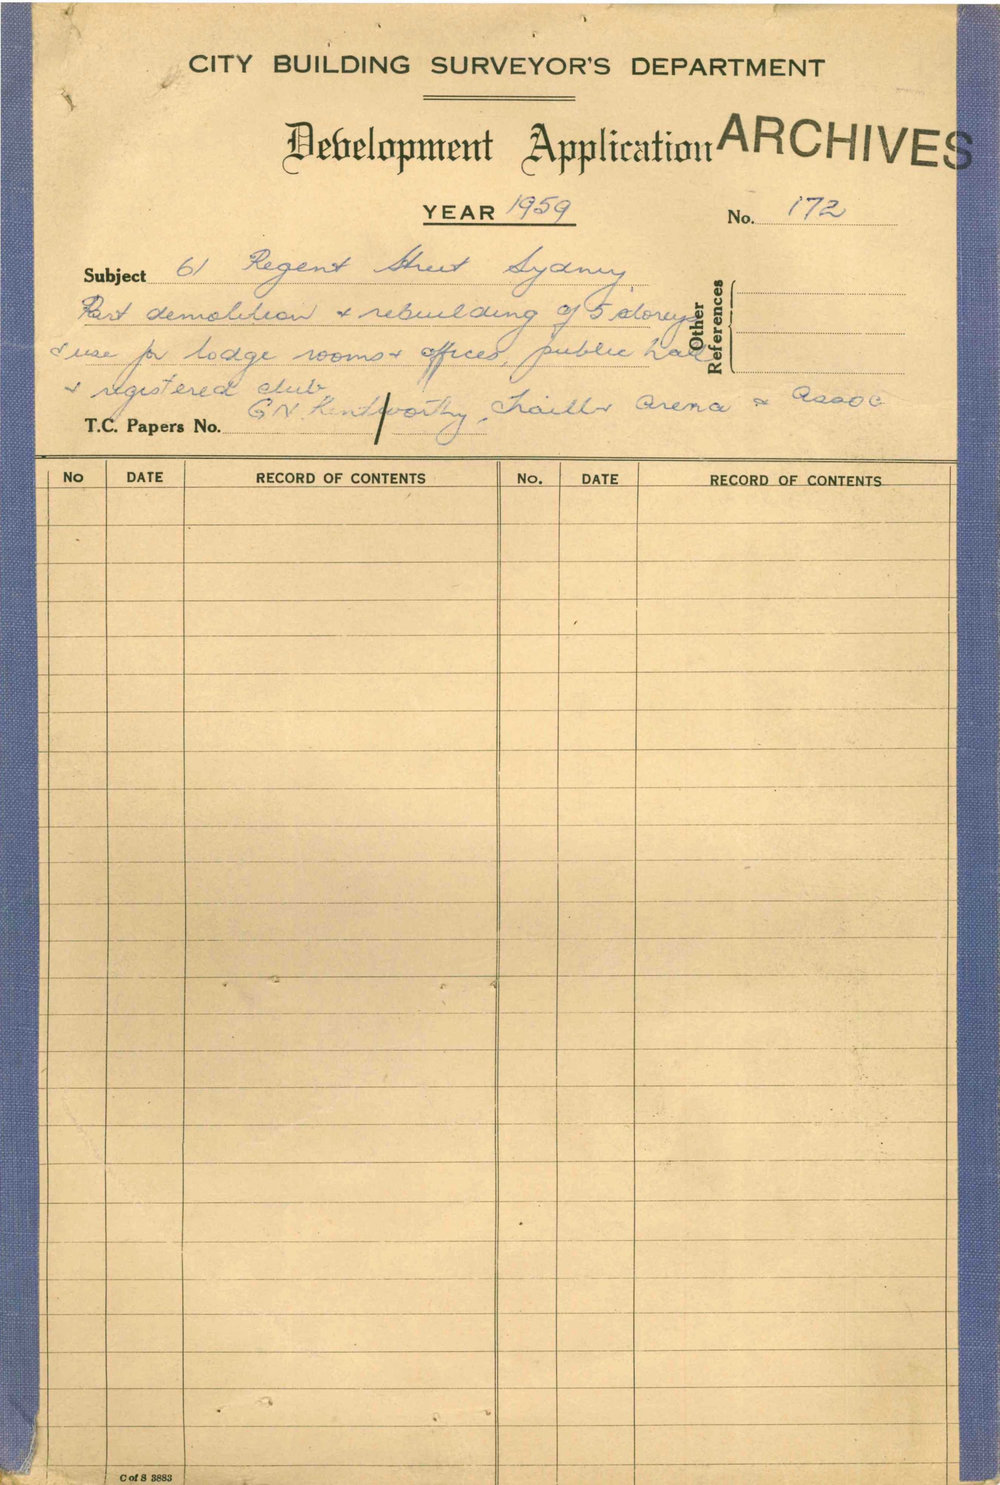 CITY BUILDING SURVEYOR'S DEPARTMENT
Development Application ARCHIVES
YEAR 1959
No. 172
Subject 61 Regent Street Sydney
Part demolition & rebuilding of 5 storeys
& use for lodge rooms & offices, public hall
& registered club
Other References
T.C. Papers No. G.N. Kentworthy, & Assoc
No DATE RECORD OF CONTENTS No. DATE RECORD OF CONTENTS
C of S 3883